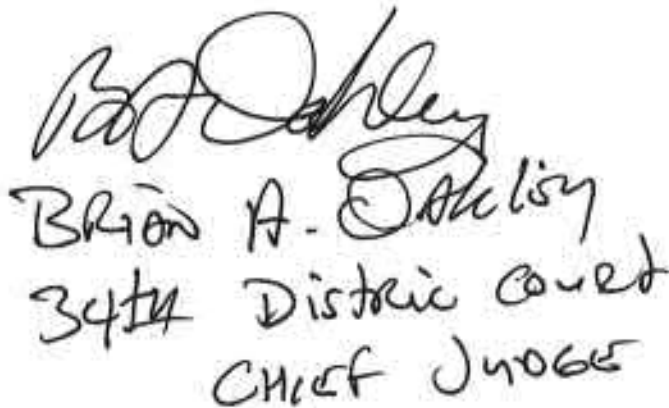 BRIAN A. OAKLEY
34TH District Court
CHIEF JUDGE